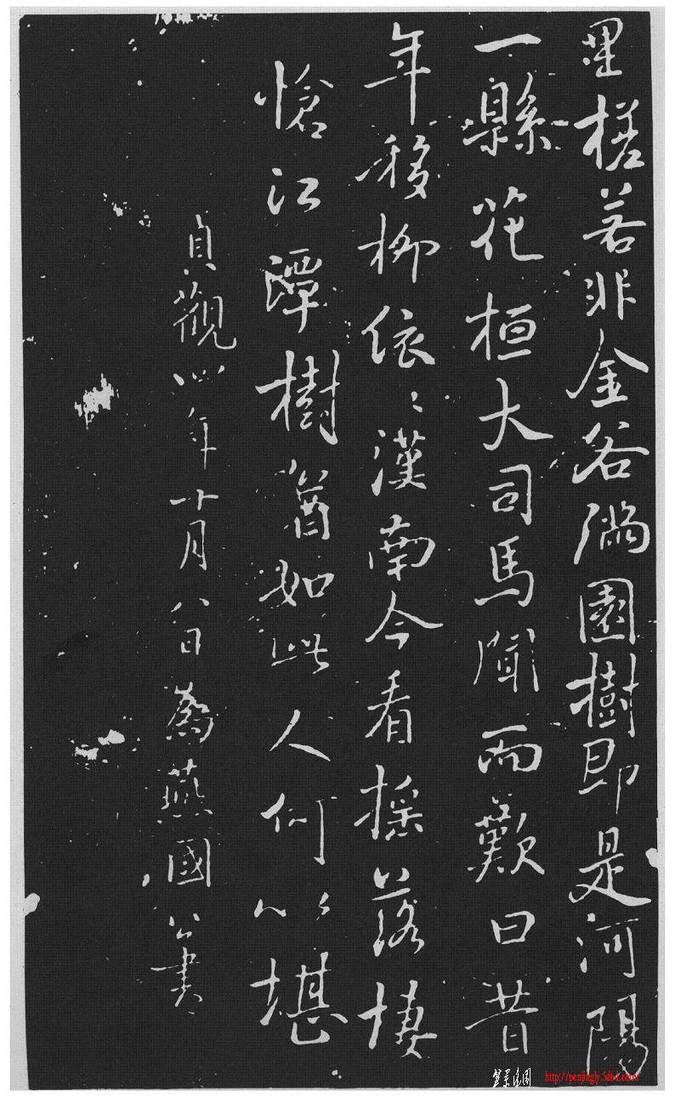 星槎若非金谷滿園樹即是河陽
一縣花桓大司馬聞而歎曰昔
年移柳依〻漢南今看搖落悽
愴江潭樹猶如此人何以堪
貞觀四年十月八日為燕國公書